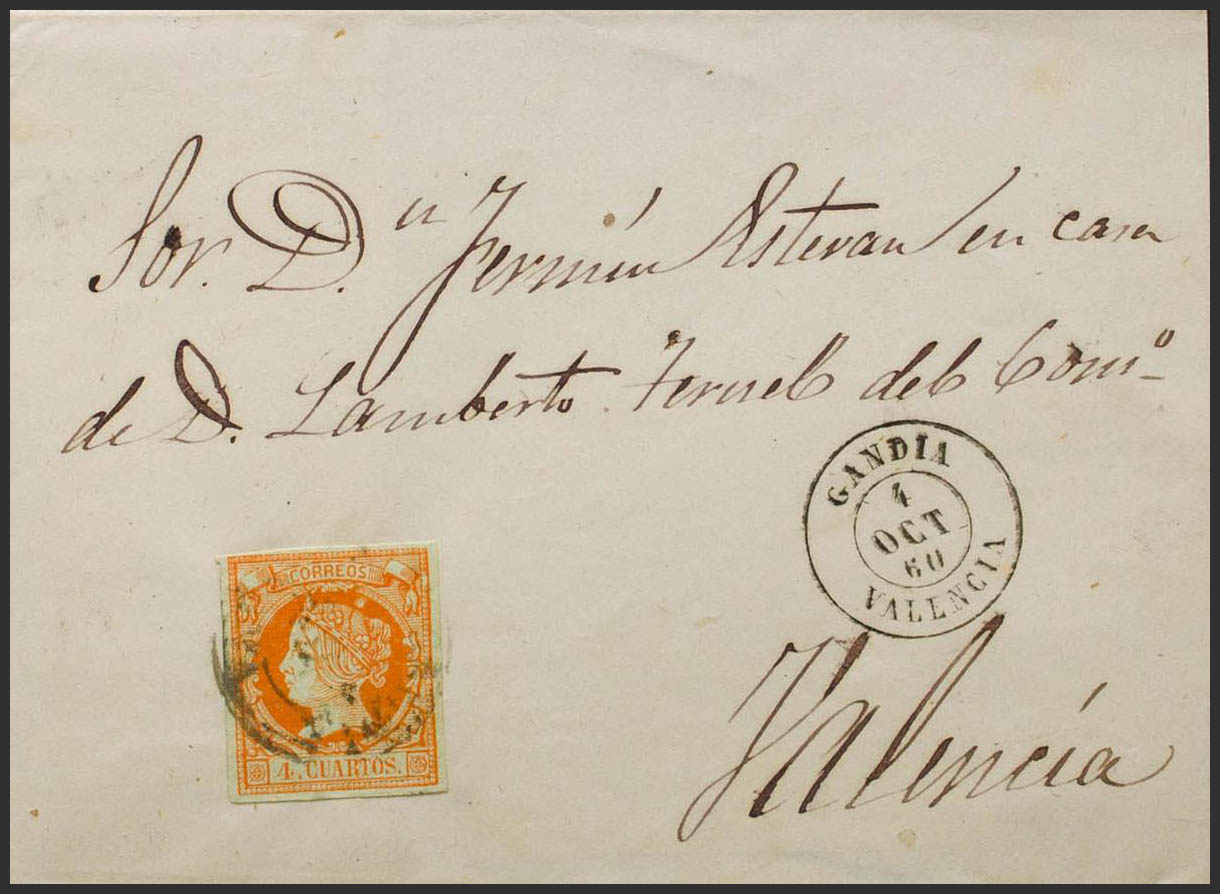 Sor. D.n Fermín Estevan en casa
de D. Lamberto Teruel del Comº
GANDIA
4
OCT
60
VALENCIA
CORREOS
4 CUARTOS.
Valencia